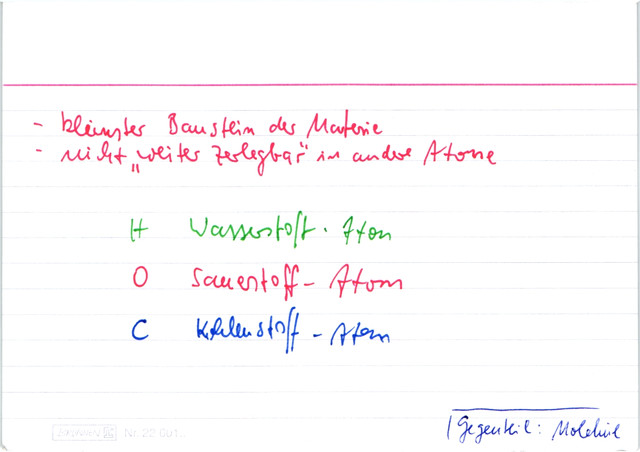 - kleinster Baustein der Materie
- nicht "weiter zerlegbar" in andere Atome
H Wasserstoff-Atom
O Sauerstoff-Atom
C Kohlenstoff-Atom
Gegenteil: Molekül
Nr. 22 661